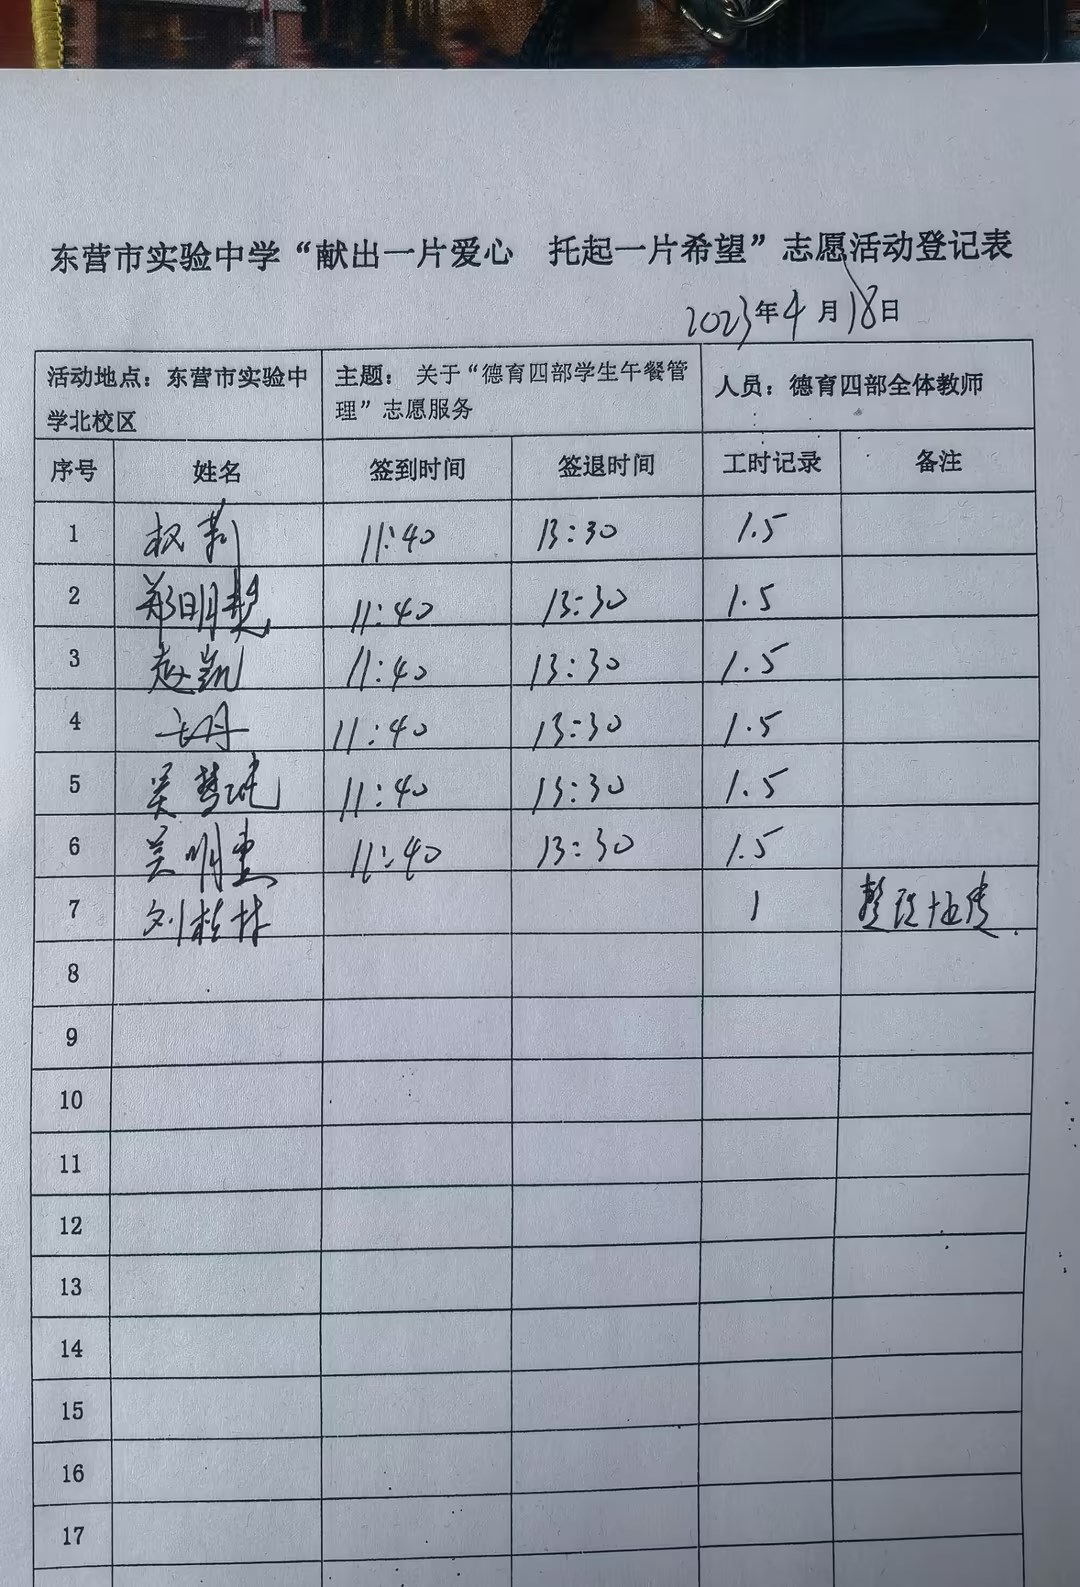 东营市实验中学“献出一片爱心 托起一片希望”志愿活动登记表
2023年4月18日
活动地点：东营市实验中学北校区 主题：关于“德育四部学生午餐管理”志愿服务 人员：德育四部全体教师
序号 姓名 签到时间 签退时间 工时记录 备注
1 权莉 11:40 13:30 1.5
2 郑明 11:40 13:30 1.5
3 赵凯 11:40 13:30 1.5
4 11:40 13:30 1.5
5 吴慧 11:40 13:30 1.5
6 吴明 11:40 13:30 1.5
7 刘桂林 1 整理
8
9
10
11
12
13
14
15
16
17